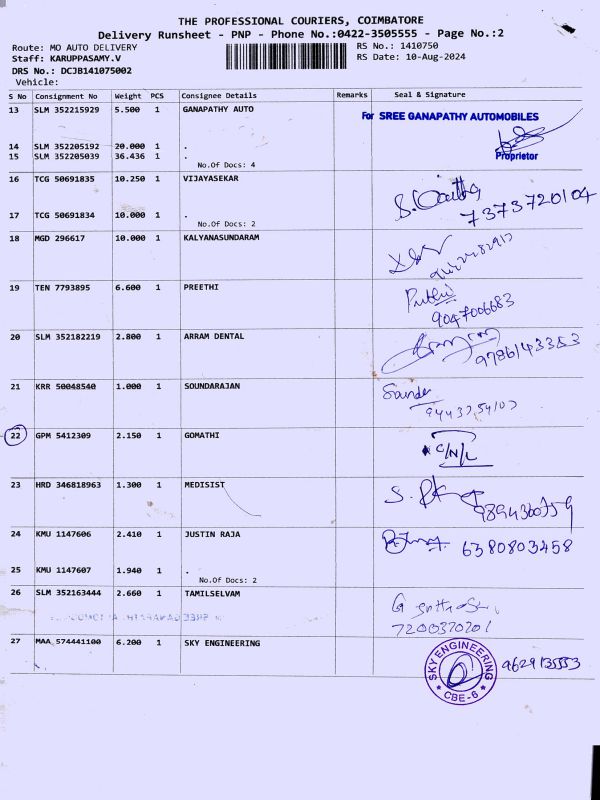 THE PROFESSIONAL COURIERS, COIMBATORE
Delivery Runsheet - PNP - Phone No.:0422-3505555 - Page No.:2
Route: MO AUTO DELIVERY RS No.: 1410750
Staff: KARUPPASAMY.V RS Date: 10-Aug-2024
DRS No.: DCJB141075002
Vehicle:
S No Consignment No Weight PCS Consignee Details Remarks Seal & Signature
13 SLM 352215929 5.500 1 GANAPATHY AUTO For SREE GANAPATHY AUTOMOBILES
14 SLM 352205192 20.000 1 .
15 SLM 352205039 36.436 1 . Proprietor
No.Of Docs: 4
16 TCG 50691835 10.250 1 VIJAYASEKAR
7373720104
17 TCG 50691834 10.000 1 .
No.Of Docs: 2
18 MGD 296617 10.000 1 KALYANASUNDARAM
19 TEN 7793895 6.600 1 PREETHI
9047006683
20 SLM 352182219 2.800 1 ARRAM DENTAL
9786143353
21 KRR 50048540 1.000 1 SOUNDARAJAN
22 GPM 5412309 2.150 1 GOMATHI C/N/L
23 HRD 346818963 1.300 1 MEDISIST
24 KMU 1147606 2.410 1 JUSTIN RAJA 6380803458
25 KMU 1147607 1.940 1 .
No.Of Docs: 2
26 SLM 352163444 2.660 1 TAMILSELVAM
7200370201
27 MAA 574441100 6.200 1 SKY ENGINEERING SKY ENGINEERING 9629135553
CBE-6